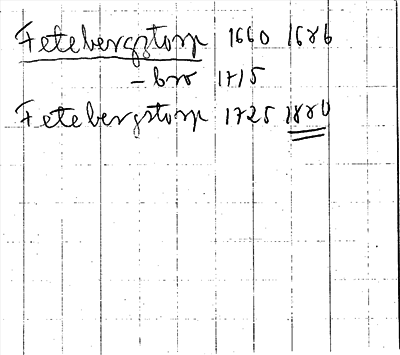 Fetebergstorp 1660 1686
- bro 1715
Fetebergstorp 1725 1880